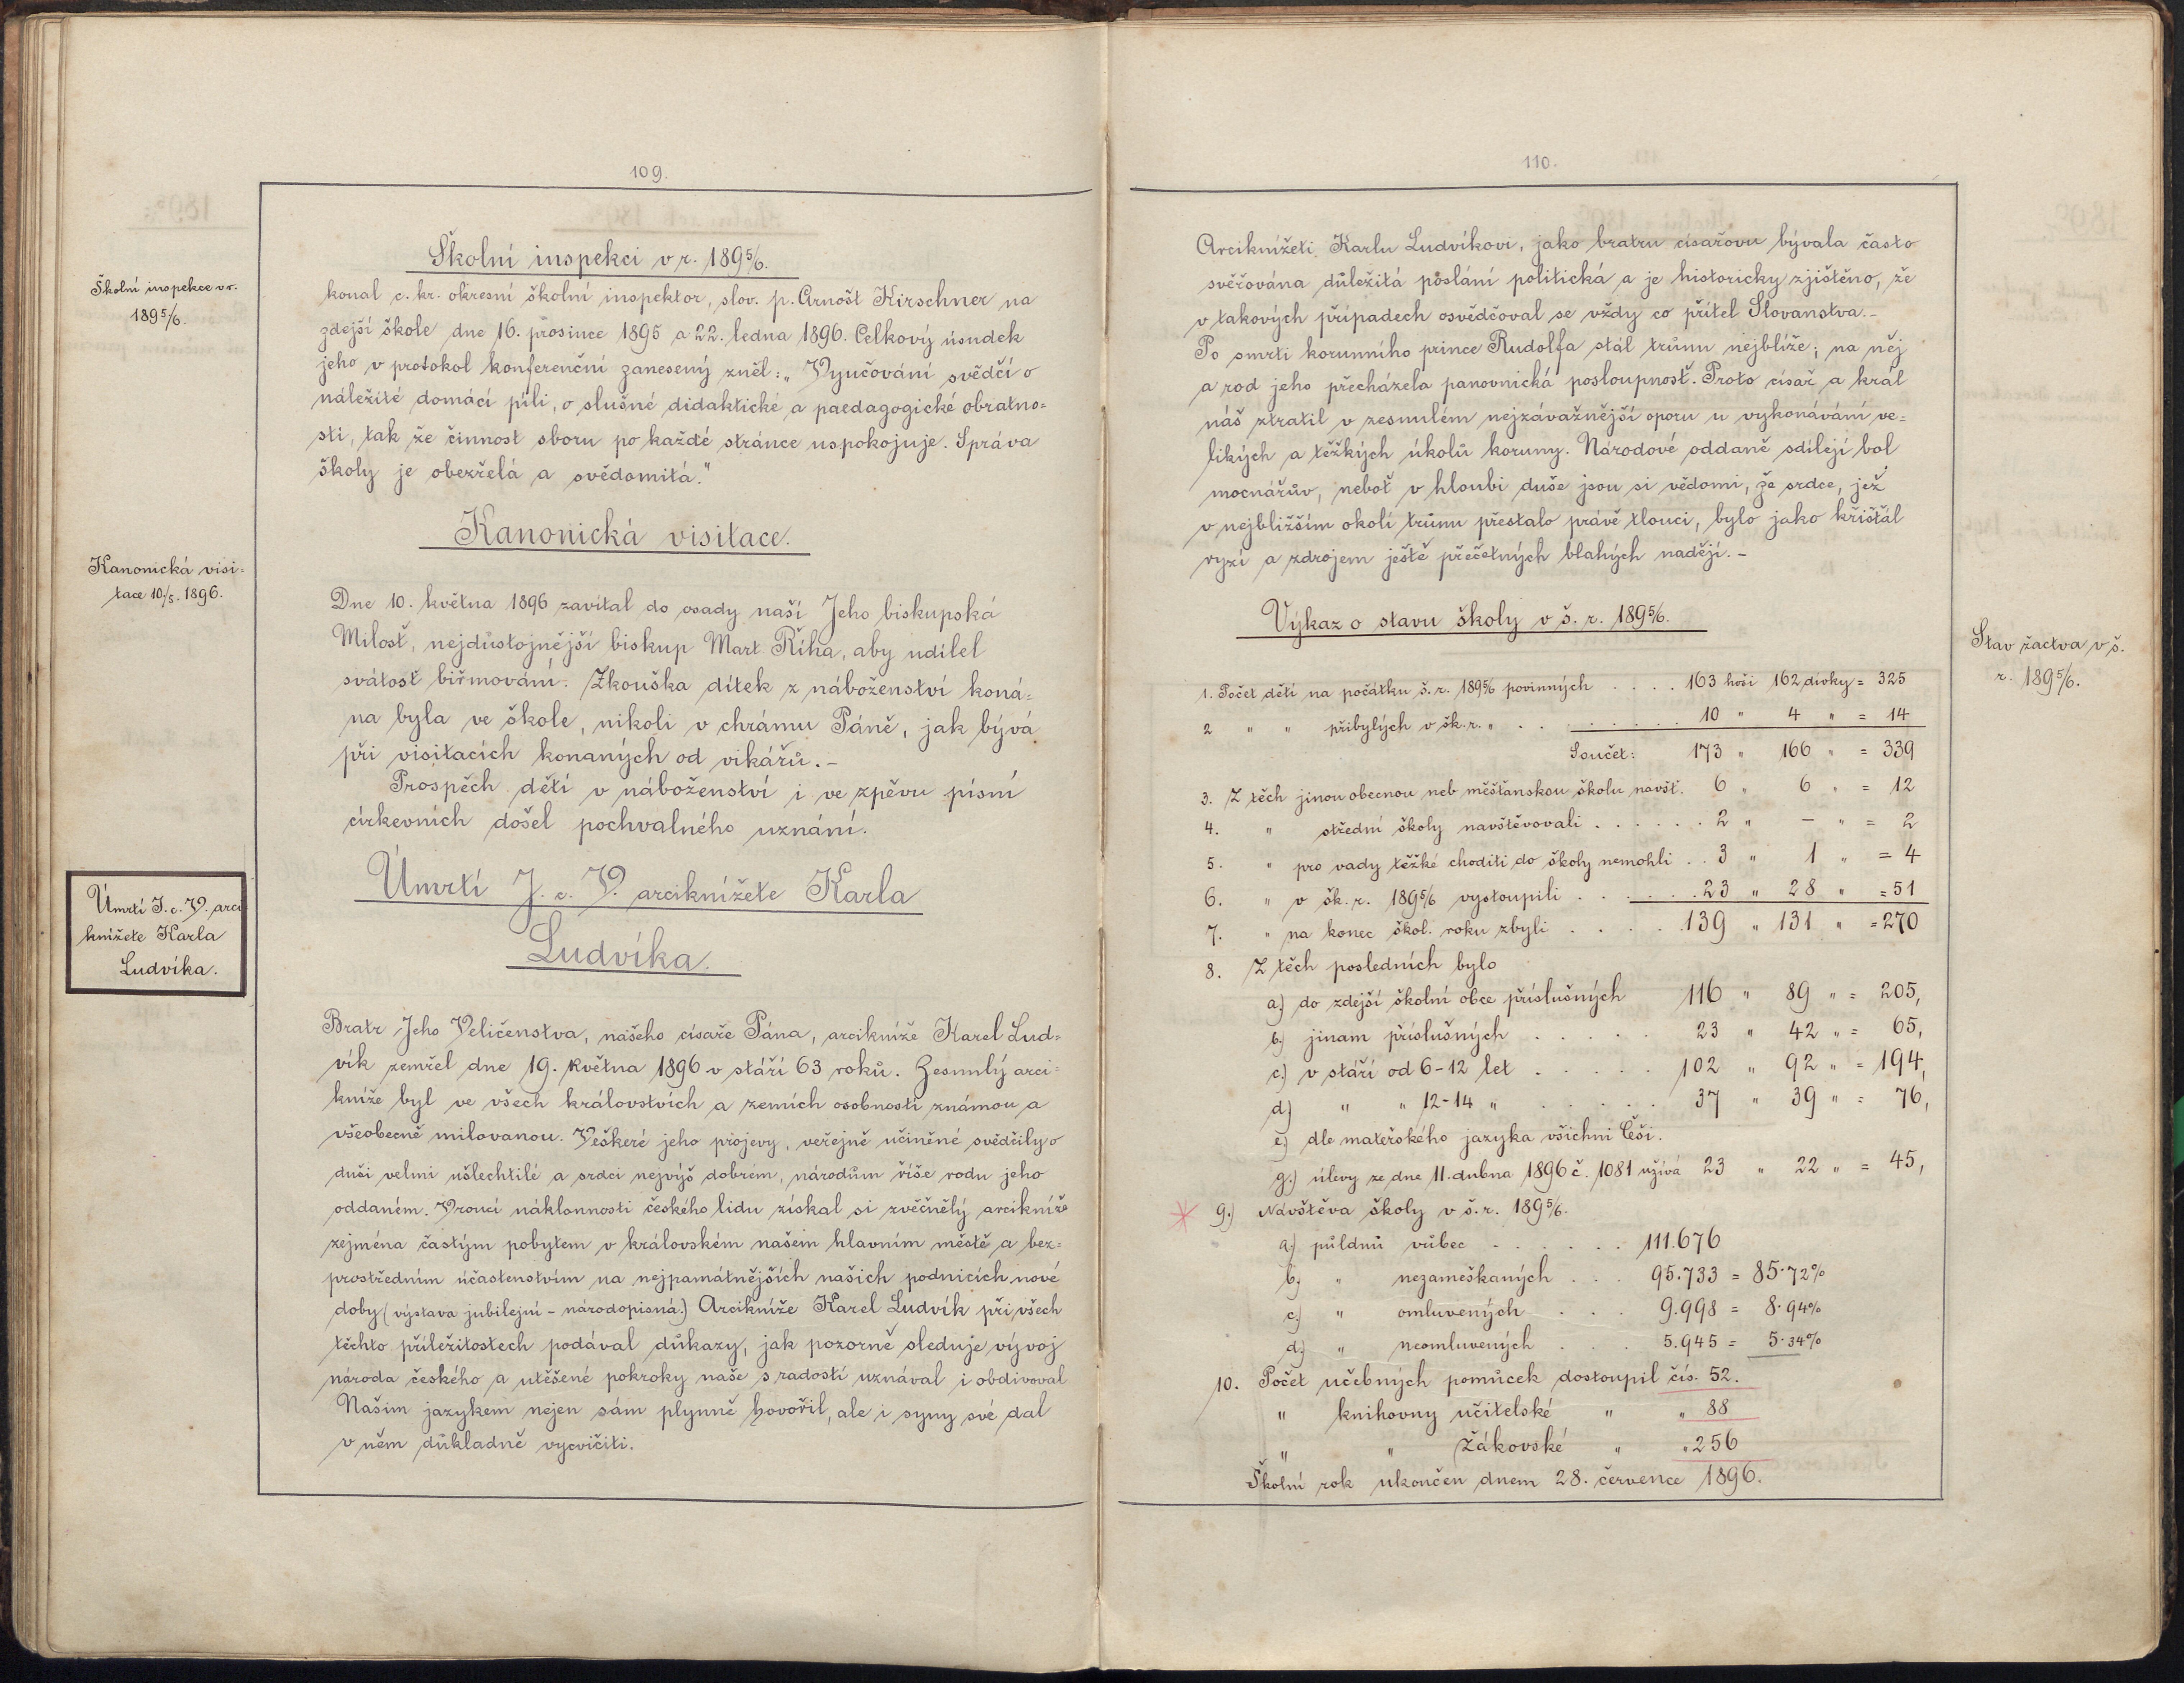 109.
Školní inspekce v r.
1895/6.
Školní inspekci v r. 1895/6.
konal c. kr. okresní školní inspektor, slov. p. Arnošt Kirschner na
zdejší škole dne 16. prosince 1895 a 22. ledna 1896. Celkový úsudek
jeho v protokol konferenční zanesený zněl: „Vyučování svědčí o
náležité domácí píli, o slušné didaktické a paedagogické obratno=
sti, tak že činnost sboru po každé stránce uspokojuje. Správa
školy je obezřelá a svědomitá."
Kanonická visi=
tace 10/5. 1896.
Kanonická visitace.
Dne 10. května 1896 zavítal do osady naší Jeho biskupská
Milosť, nejdůstojnější biskup Mart. Říha, aby udílel
svátosť biřmování. Zkouška dítek z náboženství koná=
na byla ve škole, nikoli v chrámu Páně, jak bývá
při visitacích konaných od vikářů. –
Prospěch dětí v náboženství i ve zpěvu písní
církevních došel pochvalného uznání.
Úmrtí J. c. V. arci
knížete Karla
Ludvíka.
Úmrtí J. c. V. arciknížete Karla
Ludvíka.
Bratr Jeho Veličenstva, našeho císaře Pána, arcikníže Karel Lud=
vík zemřel dne 19. května 1896 v stáří 63 roků. Zesnulý arci=
kníže byl ve všech královstvích a zemích osobností známou a
všeobecně milovanou. Veškeré jeho projevy, veřejně učiněné svědčily o
duši velmi ušlechtilé a srdci nejvýš dobrém, národům říše rodu jeho
oddaném. Vroucí náklonnosti českého lidu získal si zvěčnělý arcikníže
zejména častým pobytem v královském našem hlavním městě a bez=
prostředním účastenstvím na nejpamátnějších našich podnicích nové
doby (výstava jubilejní – národopisná.) Arcikníže Karel Ludvík při všech
těchto příležitostech podával důkazy, jak pozorně sleduje vývoj
národa českého a utěšené pokroky naše s radostí uznával i obdivoval
Naším jazykem nejen sám plynně hovořil, ale i syny své dal
v něm důkladně vycvičiti.
110.
Arciknížeti Karlu Ludvíkovi, jako bratru císařovu bývala často
svěřována důležitá poslání politická a je historicky zjištěno, že
v takových případech osvědčoval se vždy co přítel Slovanstva. –
Po smrti korunního prince Rudolfa stál trůnu nejblíže; na něj
a rod jeho přecházela panovnická posloupnosť. Proto císař a král
náš ztratil v zesnulém nejzávažnější oporu u vykonávání ve=
likých a těžkých úkolů koruny. Národové oddaně sdílejí bol
mocnářův, neboť v hloubi duše jsou si vědomi, že srdce, jež
v nejbližším okolí trůnu přestalo právě tlouci, bylo jako křišťál
ryzí a zdrojem ještě přečetných blahých nadějí. –
Výkaz o stavu školy v š. r. 1895/6.
Stav žactva v š.
r. 1895/6.
1. Počet dětí na počátku š. r. 1895/6 povinných . . . . 163 hoši 162 dívky = 325
2 " " přibylých v šk. r. " . . . . . . . . . 10 " 4 " = 14
Součet: 173 " 166 " = 339
3. Z těch jinou obecnou neb měšťanskou školu navšt. 6 " 6 " = 12
4. " střední školy navštěvovali . . . . . . 2 " – " = 2
5. " pro vady těžké choditi do školy nemohli . . 3 " 1 " = 4
6. " v šk. r. 1895/6 vystoupili . . . . . . 23 " 28 " = 51
7. " na konec škol. roku zbyli . . . . . 139 " 131 " = 270
8. Z těch posledních bylo
a.) do zdejší školní obce příslušných 116 " 89 " = 205,
b.) jinam příslušných . . . . . 23 " 42 " = 65,
c.) v stáří od 6–12 let . . . . . 102 " 92 " = 194,
d.) " " 12–14 " . . . . . 37 " 39 " = 76,
e.) dle mateřského jazyka všichni Češi.
g.) úlevy ze dne 11. dubna 1896 č. 1081 užívá 23 " 22 " = 45,
9.) Návštěva školy v š. r. 1895/6.
a.) půldnů vůbec . . . . . . 111.676
b.) " nezameškaných . . . 95.733 = 85·72%
c.) " omluvených . . . 9.998 = 8·94%
d.) " neomluvených . . . 5.945 = 5·34%
10. Počet učebných pomůcek dostoupil čís. 52.
" knihovny učitelské " " 88
" " žákovské " " 256
Školní rok ukončen dnem 28. července 1896.